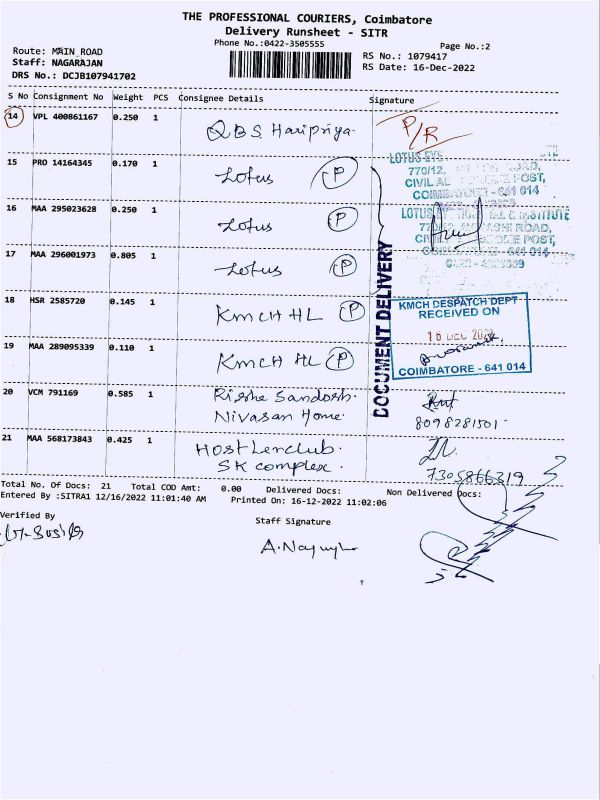 THE PROFESSIONAL COURIERS, Coimbatore
Delivery Runsheet - SITR
Phone No.:0422-3505555
Page No.:2
Route: MAIN_ROAD
Staff: NAGARAJAN
DRS No.: DCJB107941702
RS No.: 1079417
RS Date: 16-Dec-2022
S No Consignment No Weight PCS Consignee Details Signature
14 VPL 400861167 0.250 1 QBS Haripriya. P/R
15 PRO 14164345 0.170 1 Lotus P
16 MAA 295023628 0.250 1 Lotus P
17 MAA 296001973 0.805 1 Lotus P
18 HSR 2585720 0.145 1 KMCH HL P
19 MAA 289095339 0.110 1 KMCH HL P
20 VCM 791169 0.585 1 Santosh.
Nivasan Home. 8098281501
21 MAA 568173843 0.425 1
SK complex. 7305866319
DOCUMENT DELIVERY
LOTUS EYE
770/12, ROAD,
CIVIL POST,
COIMBATORE - 641 014
LOTUS INSTITUTE
ROAD,
POST,
641 014
KMCH DESPATCH DEPT
RECEIVED ON
16 DEC 2022
COIMBATORE - 641 014
Total No. Of Docs: 21 Total COD Amt: 0.00 Delivered Docs: Non Delivered Docs:
Entered By :SITRA1 12/16/2022 11:01:40 AM Printed On: 16-12-2022 11:02:06
Verified By
Staff Signature